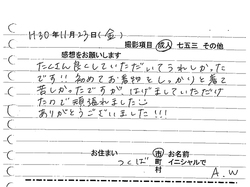 H30年11月23日(金)
撮影項目 成人 七五三 その他
感想をお願いします
たくさん良くしていただいてうれしかった
です!!初めてお着物をしっかりと着て
苦しかったですが はげましていただけ
たので頑張れました
ありがとうございました!!!
お住まい 市 お名前
つくば 町 イニシャルで
村 A.W